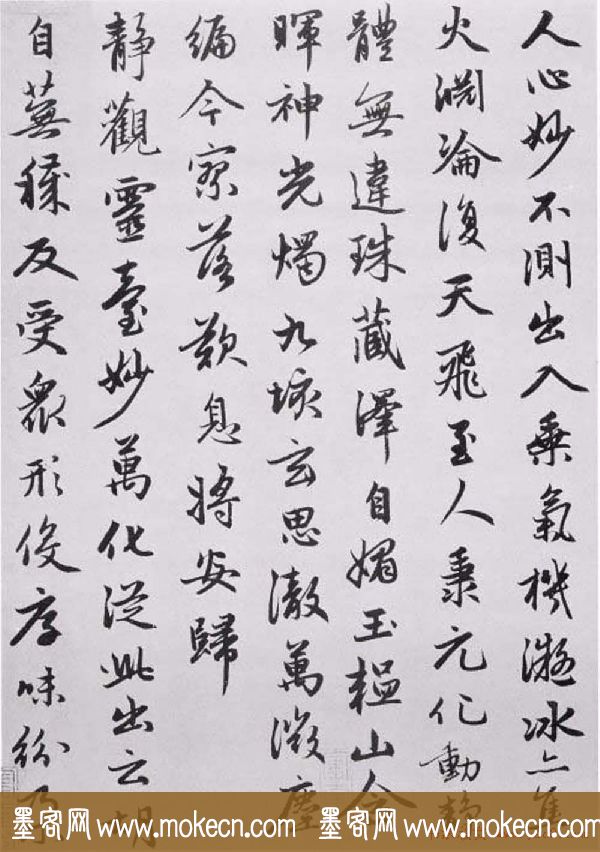 人心妙不測出入乘氣機凝冰亦焦
火淵淪復天飛至人秉元化動靜
體無違珠藏澤自媚玉韞山含
暉神光燭九垓玄思徹萬微塵
編今寥落歎息將安歸
靜觀靈臺妙萬化從此出云胡
自蕪穢反受衆形役厚味紛朵
墨客网 www.mokecn.com 墨客网 www.mokecn.com 墨客网 www.mokecn.com